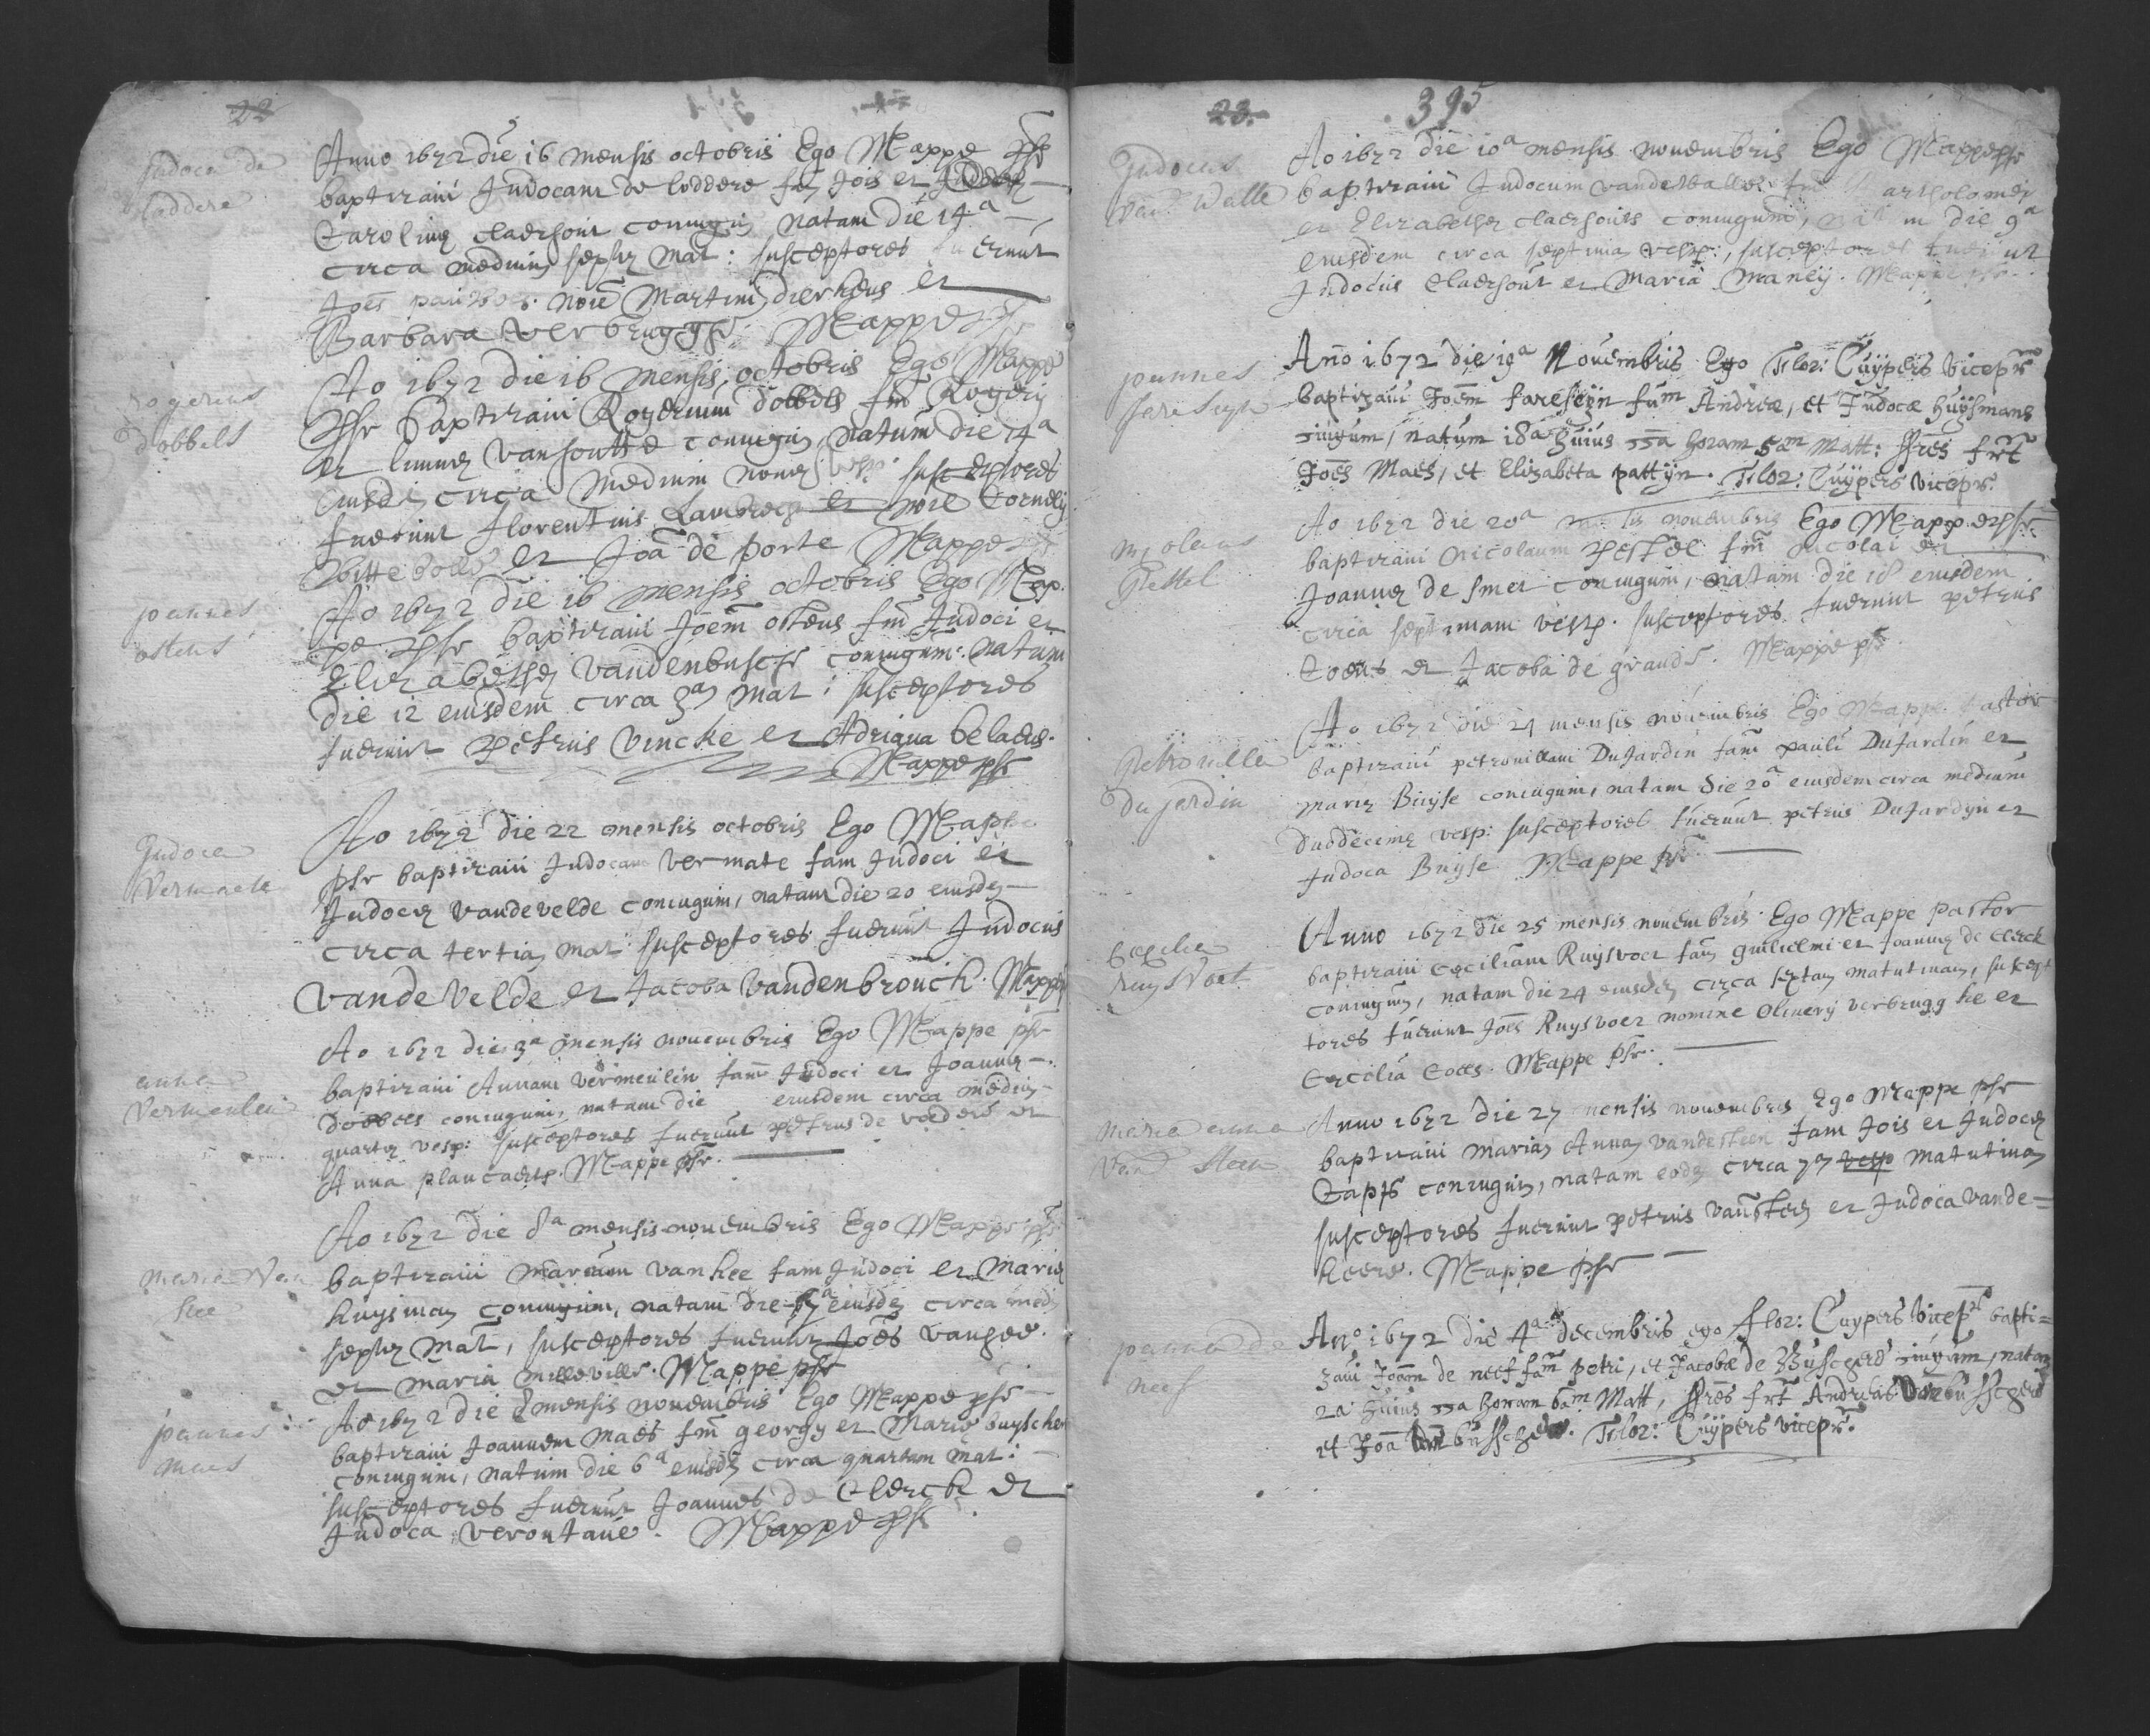 22
Judoca de
loddere
Anno 1672 die 16 mensis octobris Ego Mappe psr
baptizavi Judocam de loddere fam Jois et
Carolinæ claerhout coniugum natam die 14a
circa mediam septæ mat: susceptores fuerunt
Joes noie Martini dierkens et
Barbara verbrugghe Mappe psr
rogerius
dobbels
Ao 1672 die 16 mensis octobris Ego Mappe
psr baptizavi Rogerium dobbels fm Rogerij
et vanhoutte coniugum natum die 14a
eiusdem circa mediam nonæ vesp: susceptores
fuerunt florentius et noie Cornelij
et Joa de porte Mappe psr
joannes
ostens
Ao 1672 die 16 mensis octobris Ego Map-
pe psr baptizavi Joem ostens fm Judoci et
Elizabethæ vandenbusche coniugum natum
die 12 eiusdem circa 3am mat: susceptores
fuerunt petrus vincke et Adriana belaers.
Mappe psr
Judoca
Vermaete
Ao 1672 die 22 mensis octobris Ego Mappe
psr baptizavi Judocam vermate fam Judoci et
Judocæ vandevelde coniugum, natam die 20 eiusdem
circa tertiam mat: susceptores fuerunt Judocus
vandevelde et Jacoba vandenbrouck. Mappe
anna
Vermeulen
Ao 1672 die 3a mensis novembris Ego Mappe psr
baptizavi Annam vermeulin fam Judoci et Joannæ
dobbels coniugum, natam die eiusdem circa mediam
quartæ vesp: susceptores fuerunt petrus de vodere et
Anna plancaert. Mappe psr.
maria Van
hee
Ao 1672 die 8a mensis novembris Ego Mappe psr
baptizavi mariam vanhee fam Judoci et Mariæ
huysman coniugum, natam die 7a eiusdem circa medi
septæ mat, susceptores fuerunt Joes vanhee
et maria milleville. Mappe psr
joannes
maes
Ao 1672 die 8 mensis novembris Ego Mappe psr
baptizavi Joannem maes fm georgij et Mariæ buyschen
coniugum, natum die 6a eiusdem circa quartam mat:
susceptores fuerunt Joannes de Clerck et
Judoca verontave. Mappe psr
23.
395
Judocus
vand Walle
Ao 1672 die 10a mensis novembris Ego Mappe psr
baptizavi Judocum vandewalle fm Bartholomei
et Elizabethæ claerhouts coniugum, natum die 9a
eiusdem circa septimam vesp:, susceptores fuerunt
Judocus claerhout et Maria Maneij. Mappe psr
joannes
fareseyn
Ano 1672 die 19a Novembris Ego Flor: Cuÿpers vicepr
baptizavi Joem fareseÿn fum Andreæ, et Judocæ huÿsmans
iugum, natum 18a huius horam 5am Matt: fres frt
Joes Maes, et Elizabeta pattÿn. Flor: Cuÿpers vicepr.
nicolaus
Pestel
Ao 1672 die 20a mensis novembris Ego Mappe psr
baptizavi nicolaum pestel fm nicolai et
Joannæ de smet coniugum, natum die 18 eiusdem
circa septimam vesp. susceptores fuerunt petrus
Coens et Jacoba de grande. Mappe psr
Petronilla
du jardin
Ao 1672 die 21 mensis novembris Ego Mappe pastor
baptizavi petronillam DuJardin fam pauli DuJardin et
mariæ Buyse coniugum, natam die 20a eiusdem circa mediam
duodecimæ vesp: susceptores fuerunt petrus DuJardyn et
Judoca Buyse Mappe psr.
Cecilia
ruysvoet
Anno 1672 die 25 mensis novembris Ego Mappe pastor
baptizavi Cæciliam Ruysvoet fam guilielmi et Joannæ de clerck
coniugum, natam die 24 eiusdem circa sextam matutinam, suscep
tores fuerunt Joes Ruysvoet nomine Oliverij verbrugghe et
Cæcilia Coees. Mappe psr.
maria anna
Vand Steen
Anno 1672 die 27 mensis novembris Ego Mappe psr
baptizavi mariam Annam vandesteen fam Jois et Judocæ
coniugum, natam eodem circa 7am vesp matutinam
susceptores fuerunt petrus vandsteen et Judoca vande=
keere. Mappe psr
joanna de
neef
Ano 1672 die 4a decembris ego flor: Cuypers vicepr bapti=
zavi Joam de neef fam petri, et Jacobæ de Buschere iugum, natam
2a huius horam 6am Matt, fres frt Andreas
et Joa Flor: Cuÿpers vicepr.